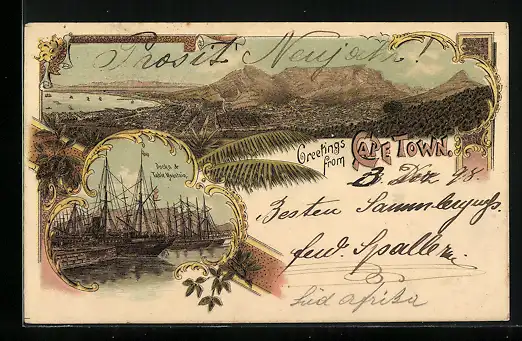 Prosit Neujahr!
Docks &
Table Mountain.
Greetings
from
CAPE TOWN.
3. Dez. 98.
Besten Sammlergruß
Süd Afrika